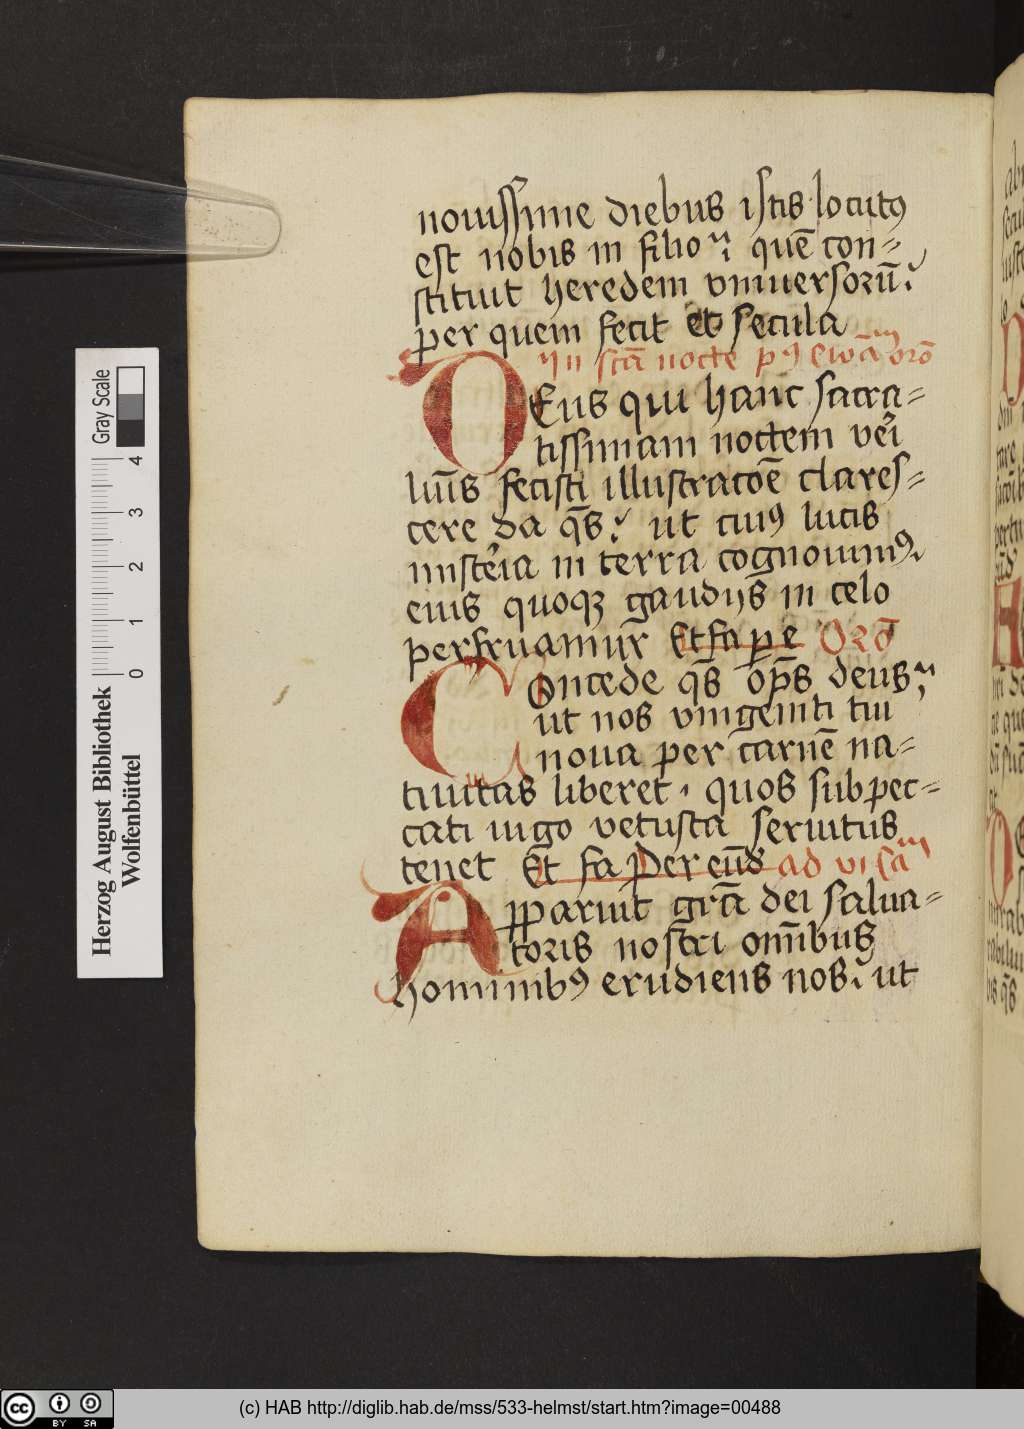 nouissime diebus istis locutꝰ
est nobis in filio quē con=
stituit heredem vniuersorū.
per quem fecit et secula
In scā nocte pꝰ ewāᵐ orō
DEus qui hanc sacra=
tissimam noctem veri
lūīs fecisti illustracōe clares=
cere da qs̄ ut cuiꝰ lucis
misteria in terra cognouimꝰ
eius quoqꝫ gaudijs in celo
perfruamur Et fa pe Orō
Concede qs̄ op̄s deus
ut nos vnigeniti tui
noua per carnē na=
tiuitas liberet. quos sub pec=
cati iugo vetusta seruitus
tenet Et fa Per eūd ad vi śaᵐ
Apparuit grā dei salua=
toris nostri omībus
hominibꝰ erudiens nos. ut
Herzog August Bibliothek
Wolfenbüttel
Gray Scale
0 1 2 3 4
cc BY SA
(c) HAB http://diglib.hab.de/mss/533-helmst/start.htm?image=00488